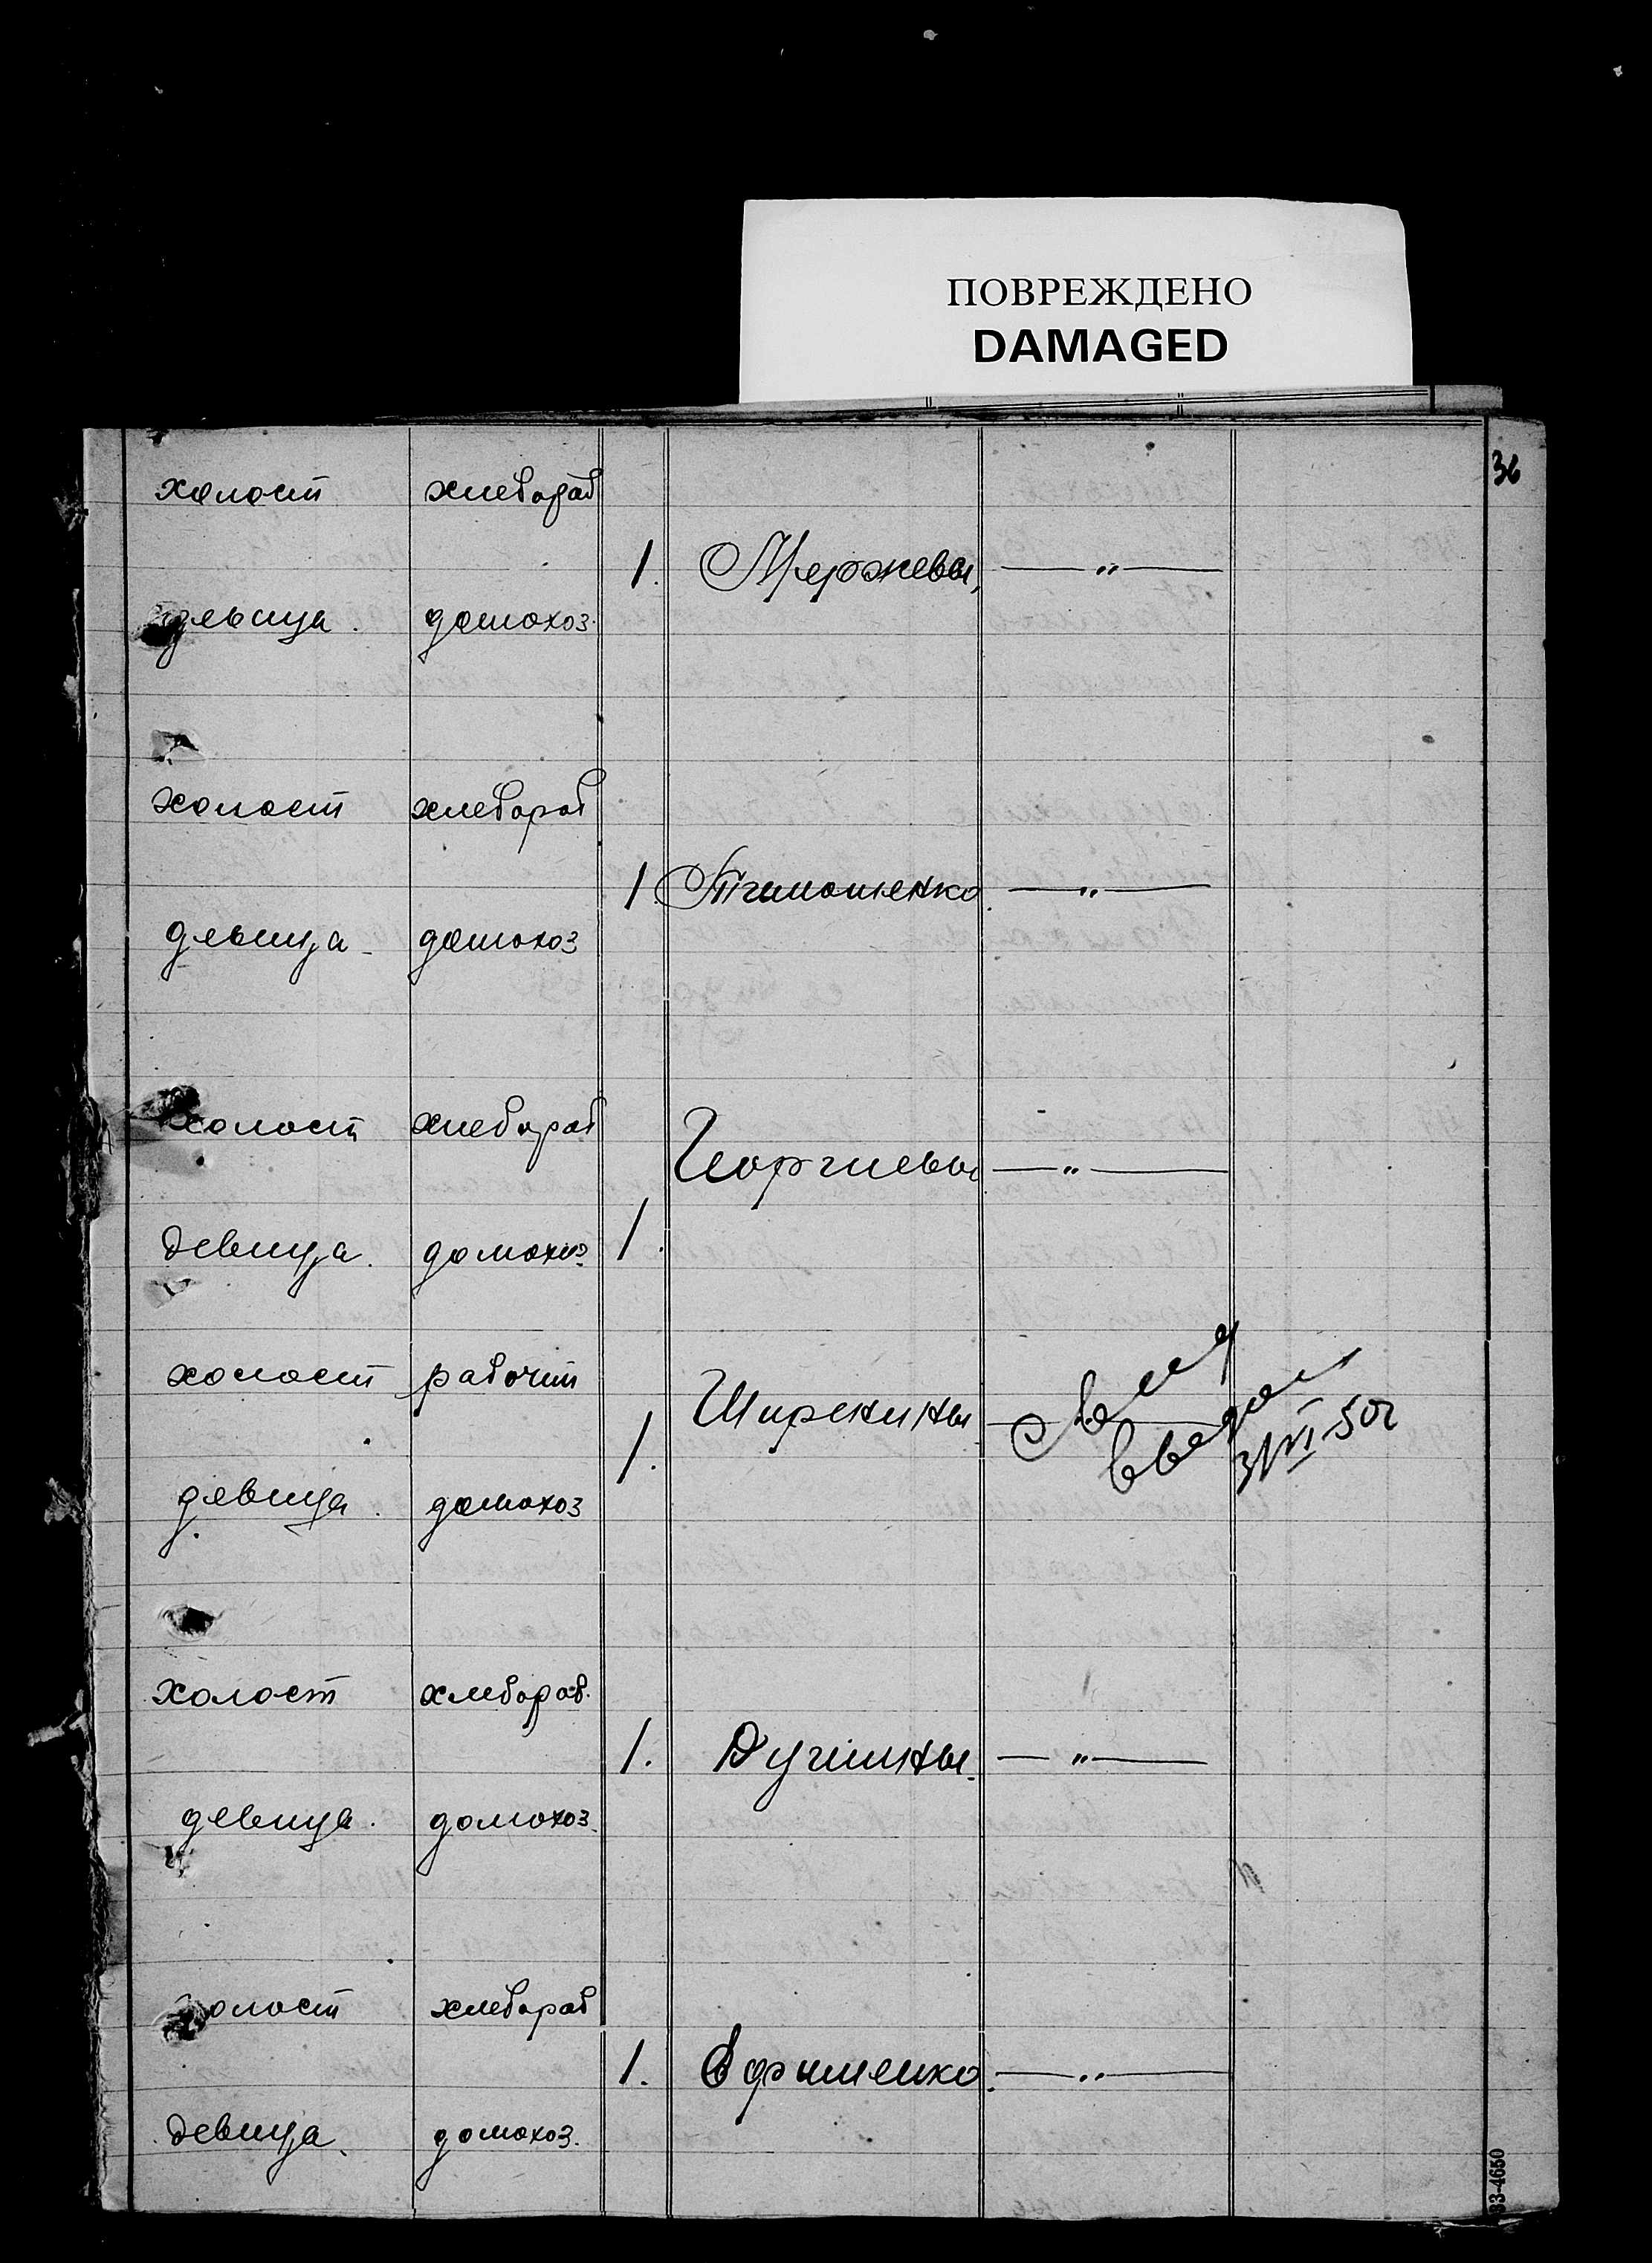 ПОВРЕЖДЕНО
DAMAGED
36
холост хлебороб
1. — „ —
девица. домохоз.
холост хлебороб
1. Тимошенко. — „ —
девица домохоз
холост хлебороб
Георгиевы — „ —
девица. домохоз. 1.
холост рабочий
Ширенины
1. 3/VI-50г
девица. домохоз
холост хлебороб.
1. — „ —
девица. домохоз.
олост хлебороб
1. Ефрименко. — „ —
девица. домохоз.
33-4650